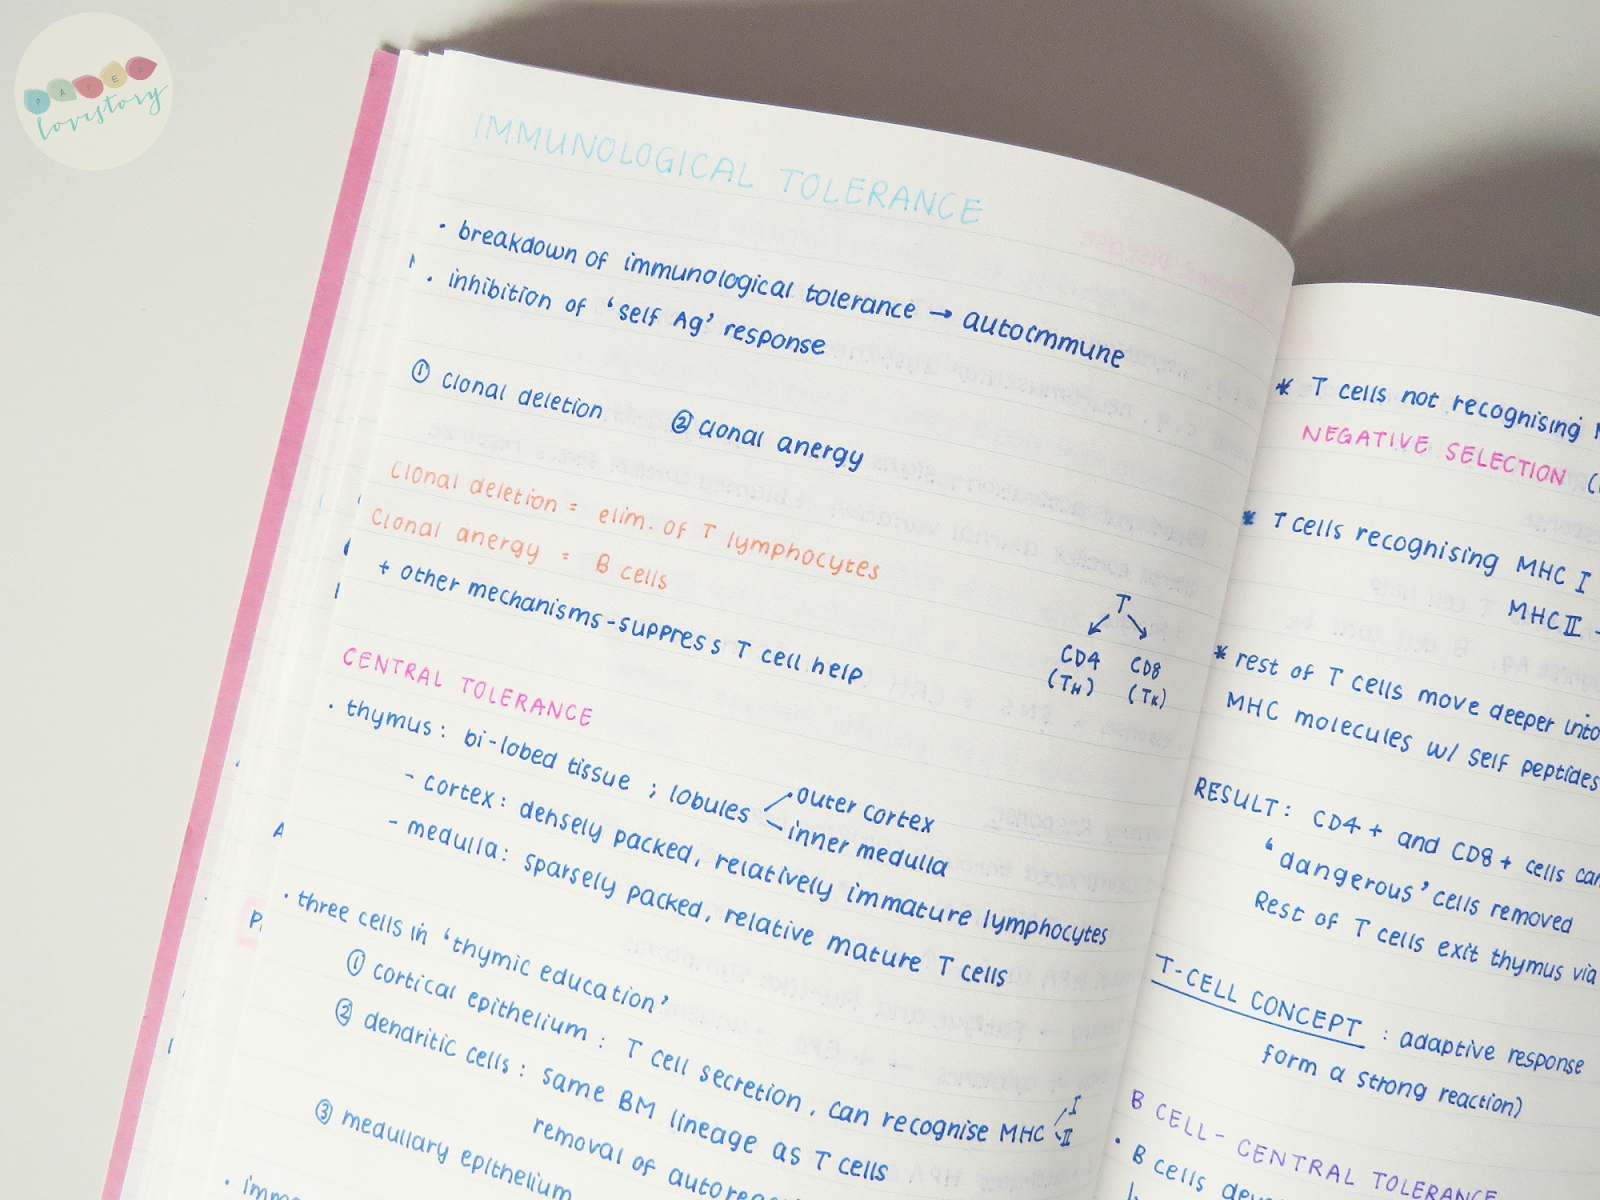 PAPER
lovestory
IMMUNOLOGICAL TOLERANCE
· breakdown of immunological tolerance → autoimmune
· inhibition of 'self Ag' response
① clonal deletion ② clonal anergy
Clonal deletion = elim. of T lymphocytes
Clonal anergy = B cells
+ other mechanisms - suppress T cell help
T
CD4 CD8
(TH) (TK)
CENTRAL TOLERANCE
· thymus: bi-lobed tissue ; lobules
outer cortex
inner medulla
- cortex: densely packed, relatively immature lymphocytes
- medulla: sparsely packed, relative mature T cells
· three cells in 'thymic education'
① cortical epithelium : T cell secretion, can recognise MHC I
II
② dendritic cells : same BM lineage as T cells
removal of
③ medullary epithelium
* T cells not recognising
NEGATIVE SELECTION
* T cells recognising MHC I
MHC II
* rest of T cells move deeper into
MHC molecules w/ self peptides
RESULT: CD4+ and CD8+ cells can
'dangerous' cells removed
Rest of T cells exit thymus via
T-CELL CONCEPT : adaptive response
form a strong reaction)
B CELL - CENTRAL TOLERANCE
· B cells